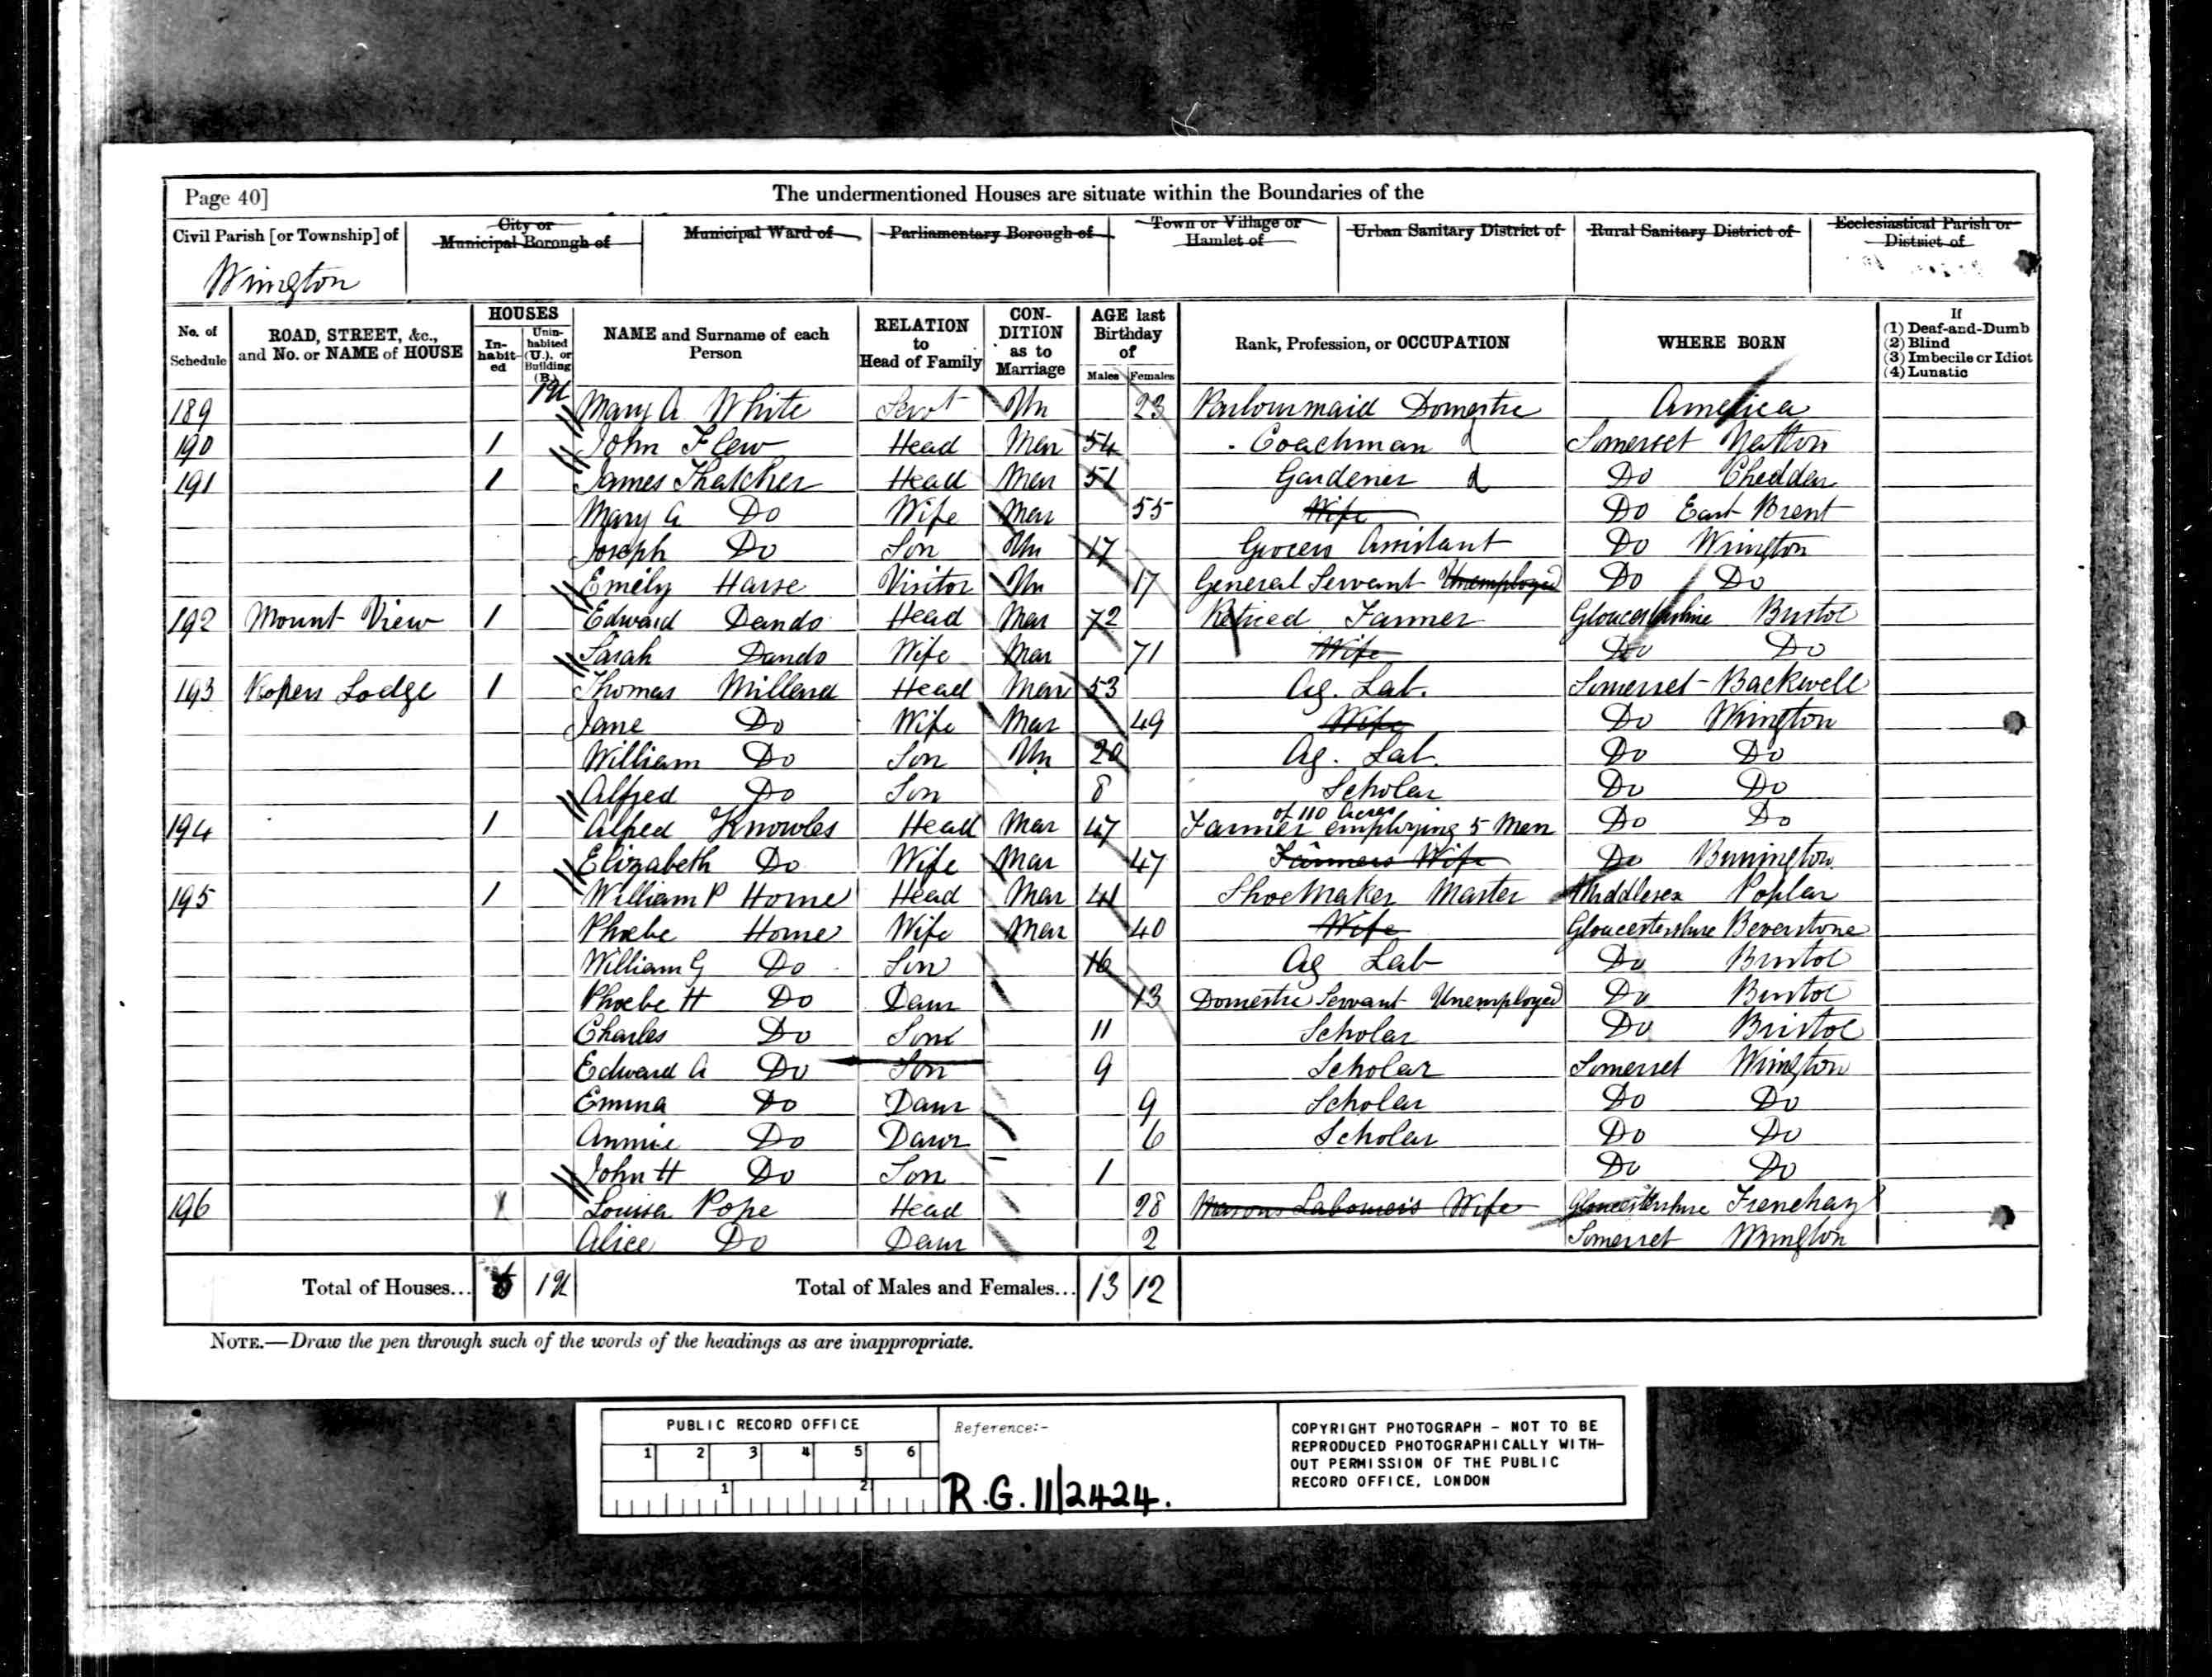 Page 40] The undermentioned Houses are situate within the Boundaries of the
Civil Parish [or Township] of City or Municipal Borough of Municipal Ward of Parliamentary Borough of Town or Village or Hamlet of Urban Sanitary District of Rural Sanitary District of Ecclesiastical Parish or District of
Wrington
No. of Schedule ROAD, STREET, &c., and No. or NAME of HOUSE HOUSES In-habit-ed Unin-habited (U.), or Building (B.) NAME and Surname of each Person RELATION to Head of Family CON-DITION as to Marriage AGE last Birthday of Males Females Rank, Profession, or OCCUPATION WHERE BORN If (1) Deaf-and-Dumb (2) Blind (3) Imbecile or Idiot (4) Lunatic
189 1U Mary A White Servt Un 23 Parlourmaid Domestic America
190 1 John Flew Head Mar 54 Coachman d Somerset
191 1 James Thatcher Head Mar 51 Gardener d Do Chedder
Mary A Do Wife Mar 55 Wife Do East Brent
Joseph Do Son Un 17 Grocers Assistant Do Wrington
Emily Harse Visitor Un 17 General Servant Unemployed Do Do
192 Mount View 1 Edward Dando Head Mar 72 Retired Farmer Gloucestershire Bristol
Sarah Dando Wife Mar 71 Wife Do Do
193 Ropers Lodge 1 Thomas Millard Head Mar 53 Ag. Lab. Somerset Backwell
Jane Do Wife Mar 49 Wife Do Wrington
William Do Son Un 20 Ag. Lab. Do Do
Alfred Do Son 8 Scholar Do Do
194 1 Alfred Knowles Head Mar 47 Farmer of 110 Acres employing 5 Men Do Do
Elizabeth Do Wife Mar 47 Farmers Wife Do Burrington
195 1 William P Horne Head Mar 41 Shoemaker Master Middlesex Poplar
Phoebe Horne Wife Mar 40 Wife Gloucestershire Beverstone
William G Do Son 16 Ag Lab Do Bristol
Phoebe H Do Daur 13 Domestic Servant Unemployed Do Bristol
Charles Do Son 11 Scholar Do Bristol
Edward A Do Son 9 Scholar Somerset Wrington
Emma Do Daur 9 Scholar Do Do
Annie Do Daur 6 Scholar Do Do
John H Do Son 1 Do Do
196 Louisa Pope Head 28 Masons Labourer's Wife Gloucestershire Frenchay
Alice Do Daur 2 Somerset Wrington
Total of Houses... 1U Total of Males and Females... 13 12
NOTE.—Draw the pen through such of the words of the headings as are inappropriate.
PUBLIC RECORD OFFICE
1 2 3 4 5 6
1 2
Reference:-
R.G. 11/2424.
COPYRIGHT PHOTOGRAPH - NOT TO BE
REPRODUCED PHOTOGRAPHICALLY WITH-
OUT PERMISSION OF THE PUBLIC
RECORD OFFICE, LONDON